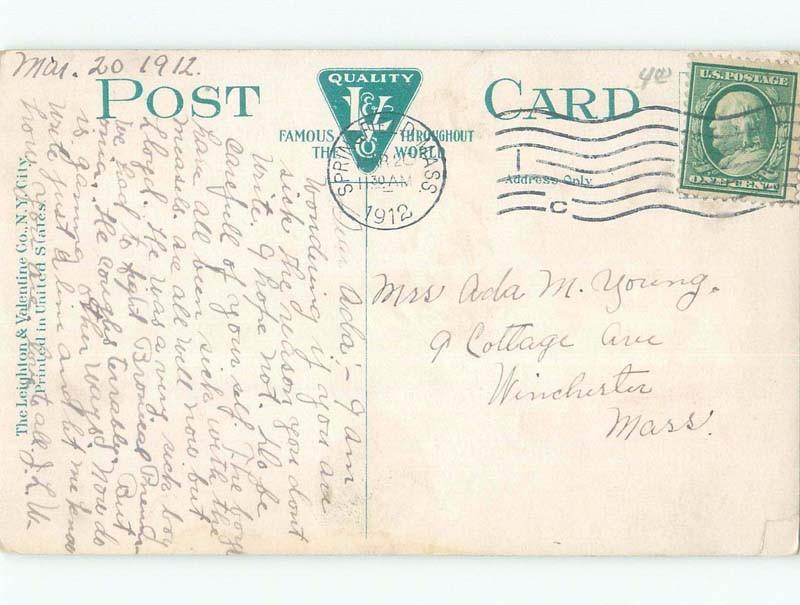 Mar. 20 1912.
POST CARD
QUALITY
L&V Co
FAMOUS THROUGHOUT
THE WORLD
4c
U.S. POSTAGE
ONE CENT
MASS.
11 30 AM
1912
Address Only.
C
Mrs Ada M. Young.
9 Cottage Ave
Winchester
Mass.
Dear Ada:- I am
wondering if you are
sick the reason you dont
write. I hope not. Do be
carefull of your self. The boys
have all been sick with the
measels are all well now but
Lloyd. He was a very sick boy
we had to fight Bronical Pneu
monia. He coughs terrably. But
is gaining other ways. Now do
write just a line and let me know
how you are. to all. J.L.W.
The Leighton & Valentine Co., N.Y. City.
Printed in United States.